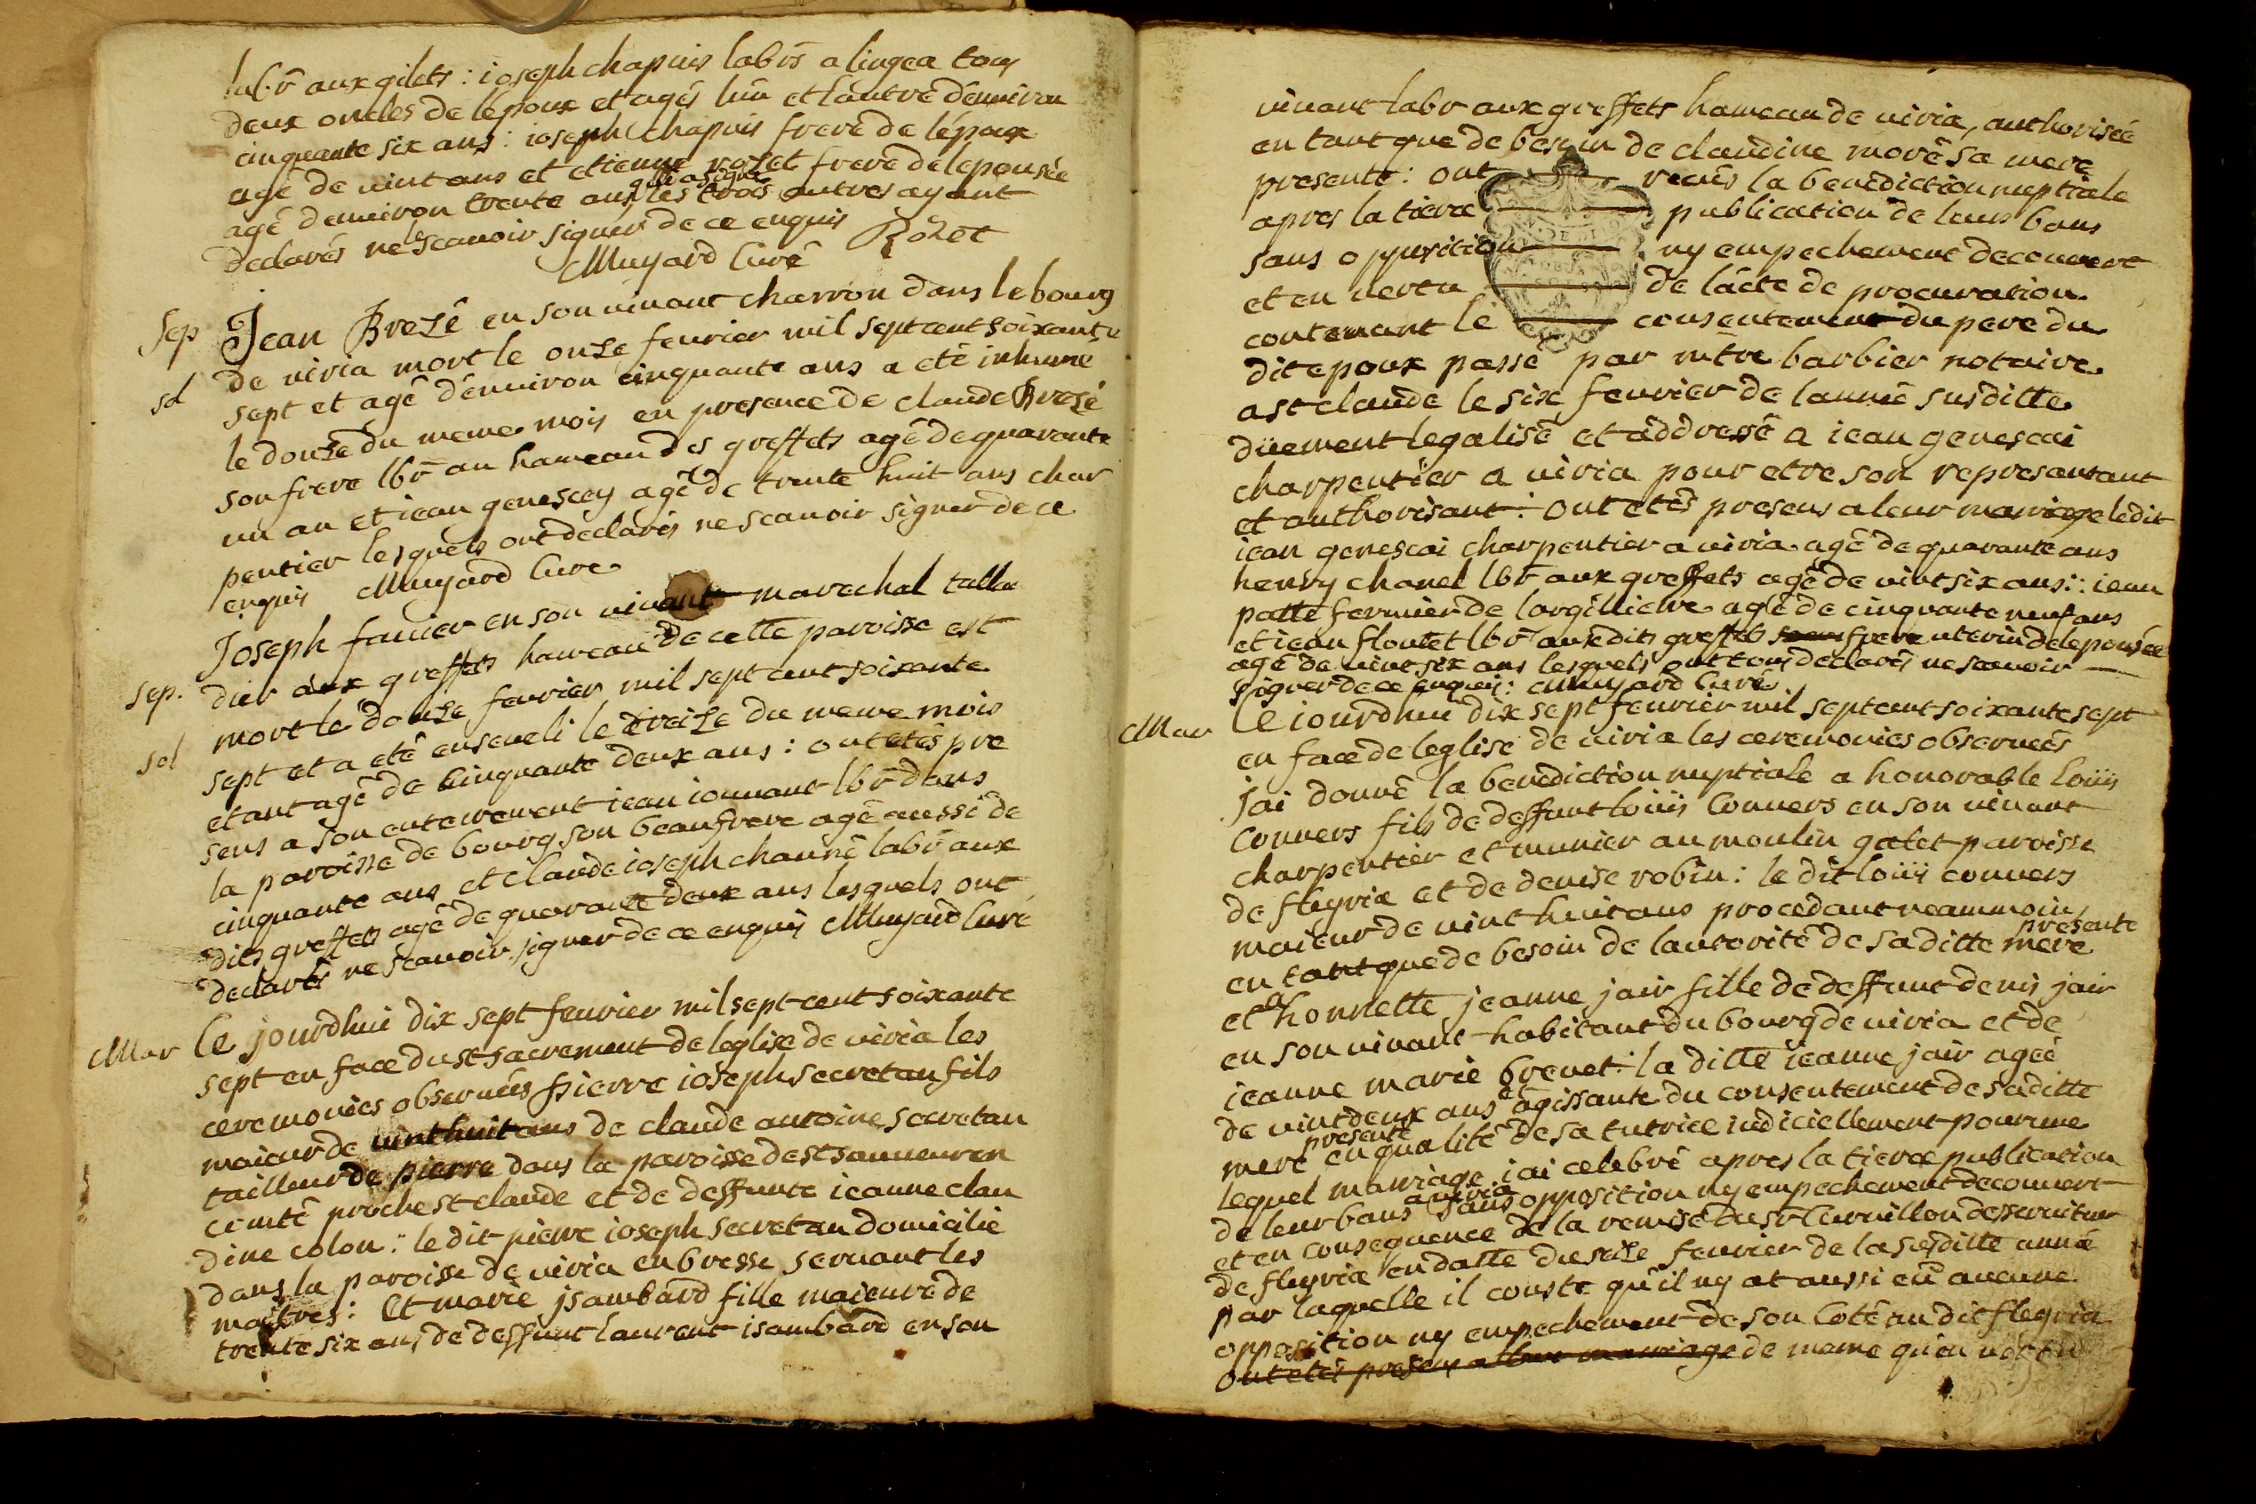 labr aux gilets : ioseph chapuis labrs a lingea tous
deux oncles de lépoux et agés lun et lautre denuiron
cinquante six ans : ioseph chapuis frere de lépoux
agé de uint ans et etienne rozet frere de lepousée
agé denuiron trente ans qui a signé les trois autres ayant
declarés ne le scauoir signer de ce enquis Rozet
Muyard Curé
Sep Jean Brezé en son uiuant charron dans le bourg
de uiria mort le onze feurier mil sept cent soixante
sol sept et agé denuiron cinquante ans a eté inhumé
le douze du meme mois en presence de claude Brezé
son frere lbr au hameau des greffets agé de quarante
un an et iean genescey agé de trente huit ans char
pentier lesquels ont declarés ne scauoir signer de ce
enquis Muyard Curé
Joseph fauier en son uiuant marechal tallan
sep. dier aux greffets hameau de cette paroisse est
mort le douze feurier mil sept cent soixante
sol sept et a eté enseueli le treize du meme mois
etant agé de cinquante deux ans : ont etés pre
sens a son enterrement iean iouuant lbr dans
la paroisse de bourg son beaufrere agé aussi de
cinquante ans et claude ioseph chauné labr aux
dits greffets agé de quarante deux ans lesquels ont
declarés ne scauoir signer de ce enquis Muyard Curé
Mar Le jourdhui dix sept feurier mil sept cent soixante
sept en face du st sacrement de leglise de uiria les
ceremonies obseruées pierre ioseph secretan fils
maieur de uint huit ans de claude antoine secretan
tailleur de pierre dans la paroisse de st sauueur en
comté proche st claude et de deffunte ieanne clau
dine colon : le dit pierre ioseph secretan domicilié
dans la paroisse de uiria en bresse seruant les
maitres : Et marie jsambard fille maieure de
trente six ans de deffunt laurent isambard en son
uiuant labr aux greffets hameau de uiria, authorisée
en tant que de besoin de claudine moré sa mere
presente : ont recus la benediction nuptiale
apres la tierce publication de leurs bans
sans opposition ny empechement decouuert
et en uertu de lacte de procuration
contenant le consentement du pere du
dit epoux passé par mtre barbier notaire
a st claude le six feurier de lannée susditte
düement legalisé et addressé a iean genescai
charpentier a uiria pour etre son representant
et authorisant : ont etés presens a leur mariage ledit
iean genescai charpentier a uiria agé de quarante ans
henry chanel lbr aux greffets agé de uint six ans : iean
patte fermier de largilliere agé de cinquante neuf ans
et iean floutet lbr aux dits greffets frere uterin de lepousée
agé de uint six ans lesquels ont tous declarés ne scauoir
signer de ce enquis : Muyard Curé
Mar Le iourdhui dix sept feurier mil sept cent soixante sept
en face de leglise de uiria les ceremonies obseruées
jai donné la benediction nuptiale a honorable Loüis
Conuers fils de deffunt loüis Conuers en son uiuant
charpentier et munier au moulin galet paroisse
de fleyria et de denise robin : le dit loüis conuers
maieur de uint huit ans procedant neanmoins
en tant que de besoin de lautorité de sa ditte mere presente
et a honnette jeanne jair fille de deffunt denis jair
en son uiuant habitant du bourg de uiria et de
ieanne marie breuet : la ditte ieanne jair agée
de uint deux ans et agissante du consentement de sa ditte
mere presente en qualité de sa tutrice iudiciellement pourme
lequel mariage iai celebré apres la tierce publication
de leur bans a uiria sans opposition ny empechement decouuert
et en consequence de la remise du sr Curuillon desseruiteur
de fleyria en datte du seize feurier de la susditte année
par laquelle il conste qu'il ny at aussi eû aucune
opposition ny empechement de son coté au dit fleyria
ont etés presens a leur mariage de meme qu'en